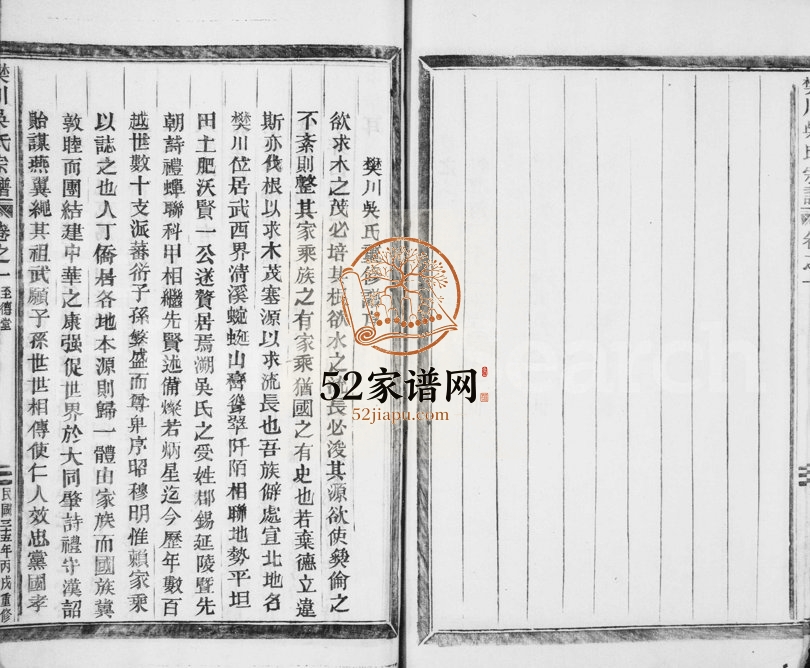 樊川吳氏宗譜 卷之一
樊川吳氏重修
欲求木之茂必培其根欲水之長必浚其源欲使彝倫之
不紊則整其家乘族之有家乘猶國之有史也若棄德立違
斯亦伐根以求木茂塞源以求流長也吾族僻處宜北地名
樊川位居武西界清溪蜿蜒山齊聳翠阡陌相聯地勢平坦
田土肥沃賢一公遂贅居焉溯吳氏之受姓郡錫延陵暨先
朝詩禮蟬聯科甲相繼先賢述備燦若炳星迄今歷年數百
越世數十支派蕃衍子孫繁盛而尊卑序昭穆明惟賴家乘
以誌之也人丁僑居各地本源則歸一體由家族而國族冀
敦睦而團結建中華之康强促世界於大同肇詩禮守漢詔
貽謀燕翼繩其祖武願子孫世世相傳使仁人效忠黨國孝
樊川吳氏宗譜 卷之一 至德堂 民國三十五年丙戌重修
52家谱网
52jiapu.com